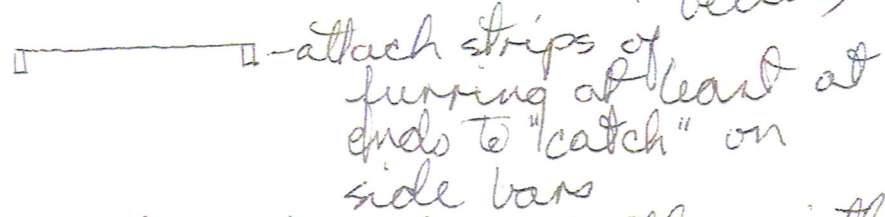 -attach strips of
furring at least at
ends to "catch" on
side bars